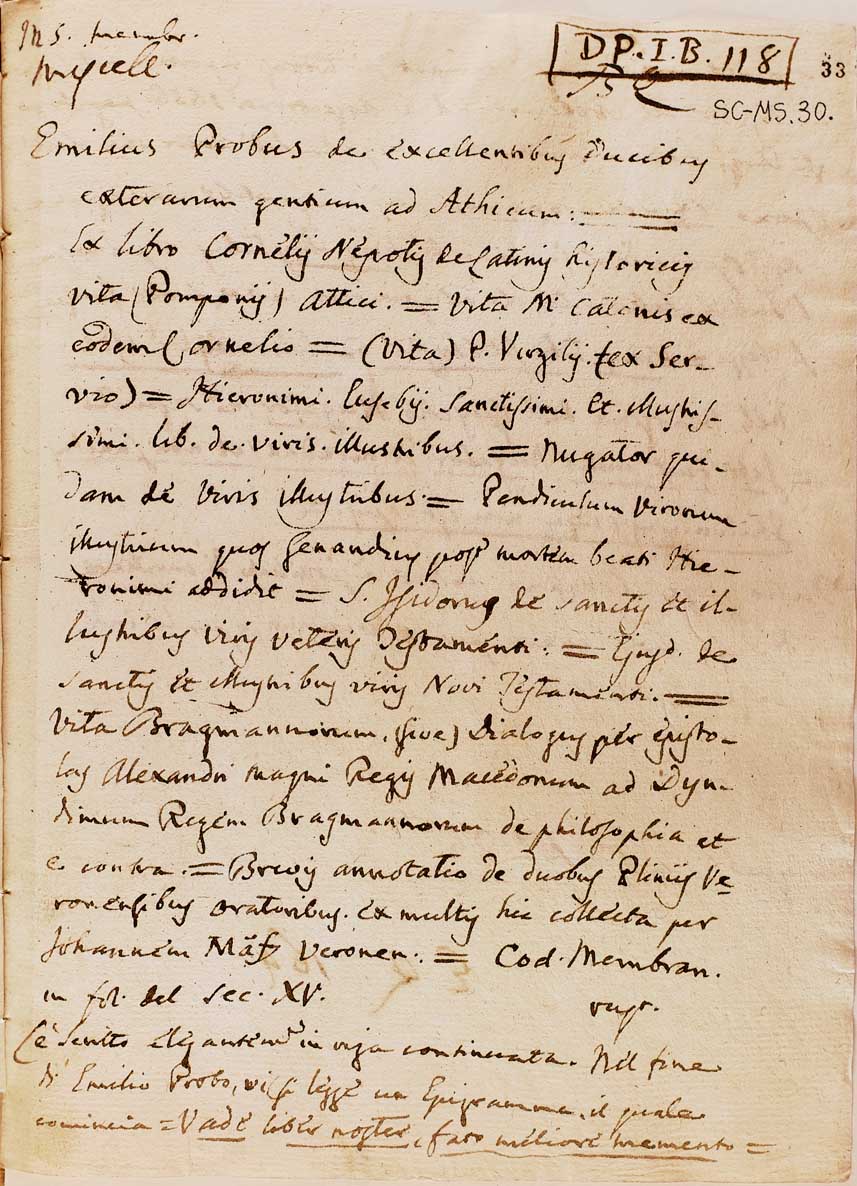 MS. membr.
miscell.
DP. I. B. 118
33
SC-MS. 30.
Emilius Probus de excellentibus Ducibus
exterarum gentium ad Athicum: =
Ex libro Cornelij Nepotis de Latinis historicis
vita (Pomponij) Attici. = Vita M. Catonis ex
eodem Cornelio = (Vita) P. Virgilij. (ex Ser-
vio) = Hieronimi. Eusebij. Sanctissimi. Et. illustris-
simi. lib. de. viris. illustribus. = Nugator qui-
dam de Viris illustribus = Pendiculum Virorum
illustrium quos Genandius post mortem beati Hie-
ronimi addidit = S. Isidorus de sanctis et il-
lustribus viris veteris Testamenti. = Ejusd. de
sanctis et illustribus viris Novi Testamenti. =
Vita Bragmannorum, (sive) Dialogus per episto-
las Alexandri magni Regis Macedonum ad Dyn-
dimum Regem Bragmannorum de philosophia et
e contra. = Brevis annotatio de duobus Plinijs Ve=
ronensibus oratoribus. ex multis hic collecta per
Johannem Mäs Veronen. = Cod. Membran.
in fol. del sec. XV.
(è scritto elegantemte in riga continuata. Nel fine
di Emilio Probo, vi si legge un Epigramma, il quale
comincia = Vade liber noster, fato meliore memento =